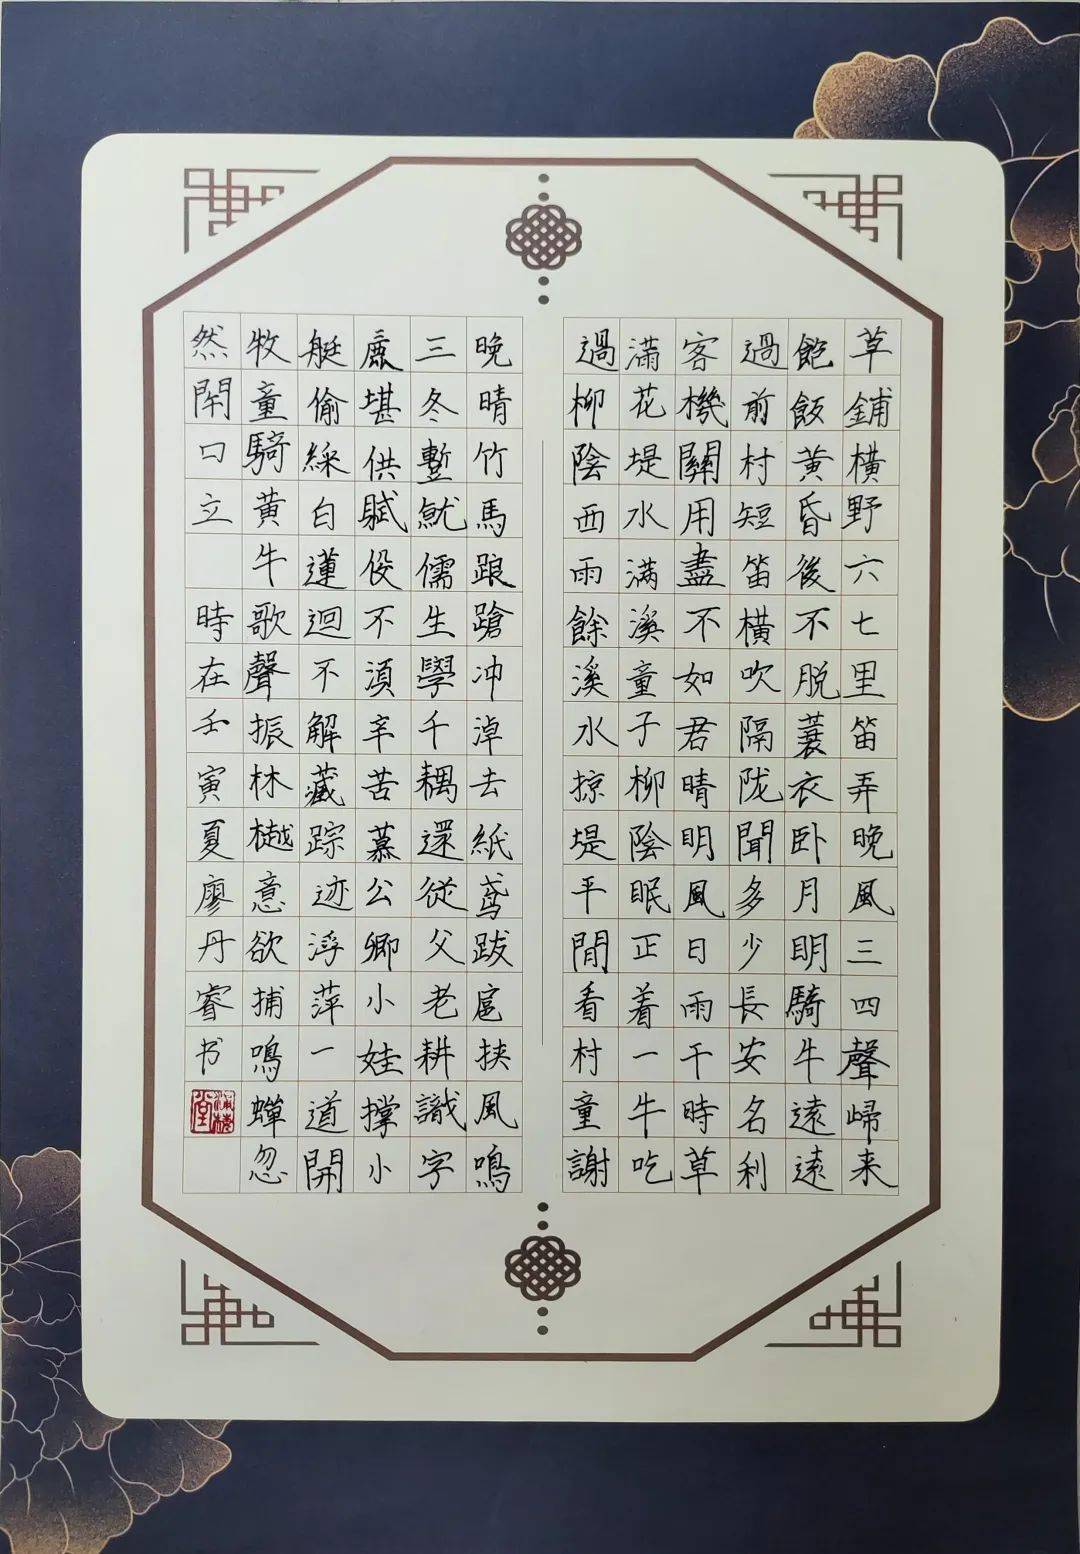 草鋪橫野六七里笛弄晚風三四聲歸来
飽飯黃昏後不脱蓑衣卧月明騎牛遠遠
過前村短笛橫吹隔陇聞多少長安名利
客機關用盡不如君晴明風日雨干時草
滿花堤水满溪童子柳陰眠正着一牛吃
過柳陰西雨餘溪水掠堤平間看村童謝
晚晴竹馬踉蹌冲淖去紙鳶跋扈挟風鳴
三冬暫就儒生學千耦還從父老耕識字
麤堪供賦役不須辛苦慕公卿小娃撑小
艇偷綵白蓮迴不解藏踪迹浮萍一道開
牧童騎黄牛歌聲振林樾意欲捕鳴蟬忽
然閉口立 時在壬寅夏廖丹睿书